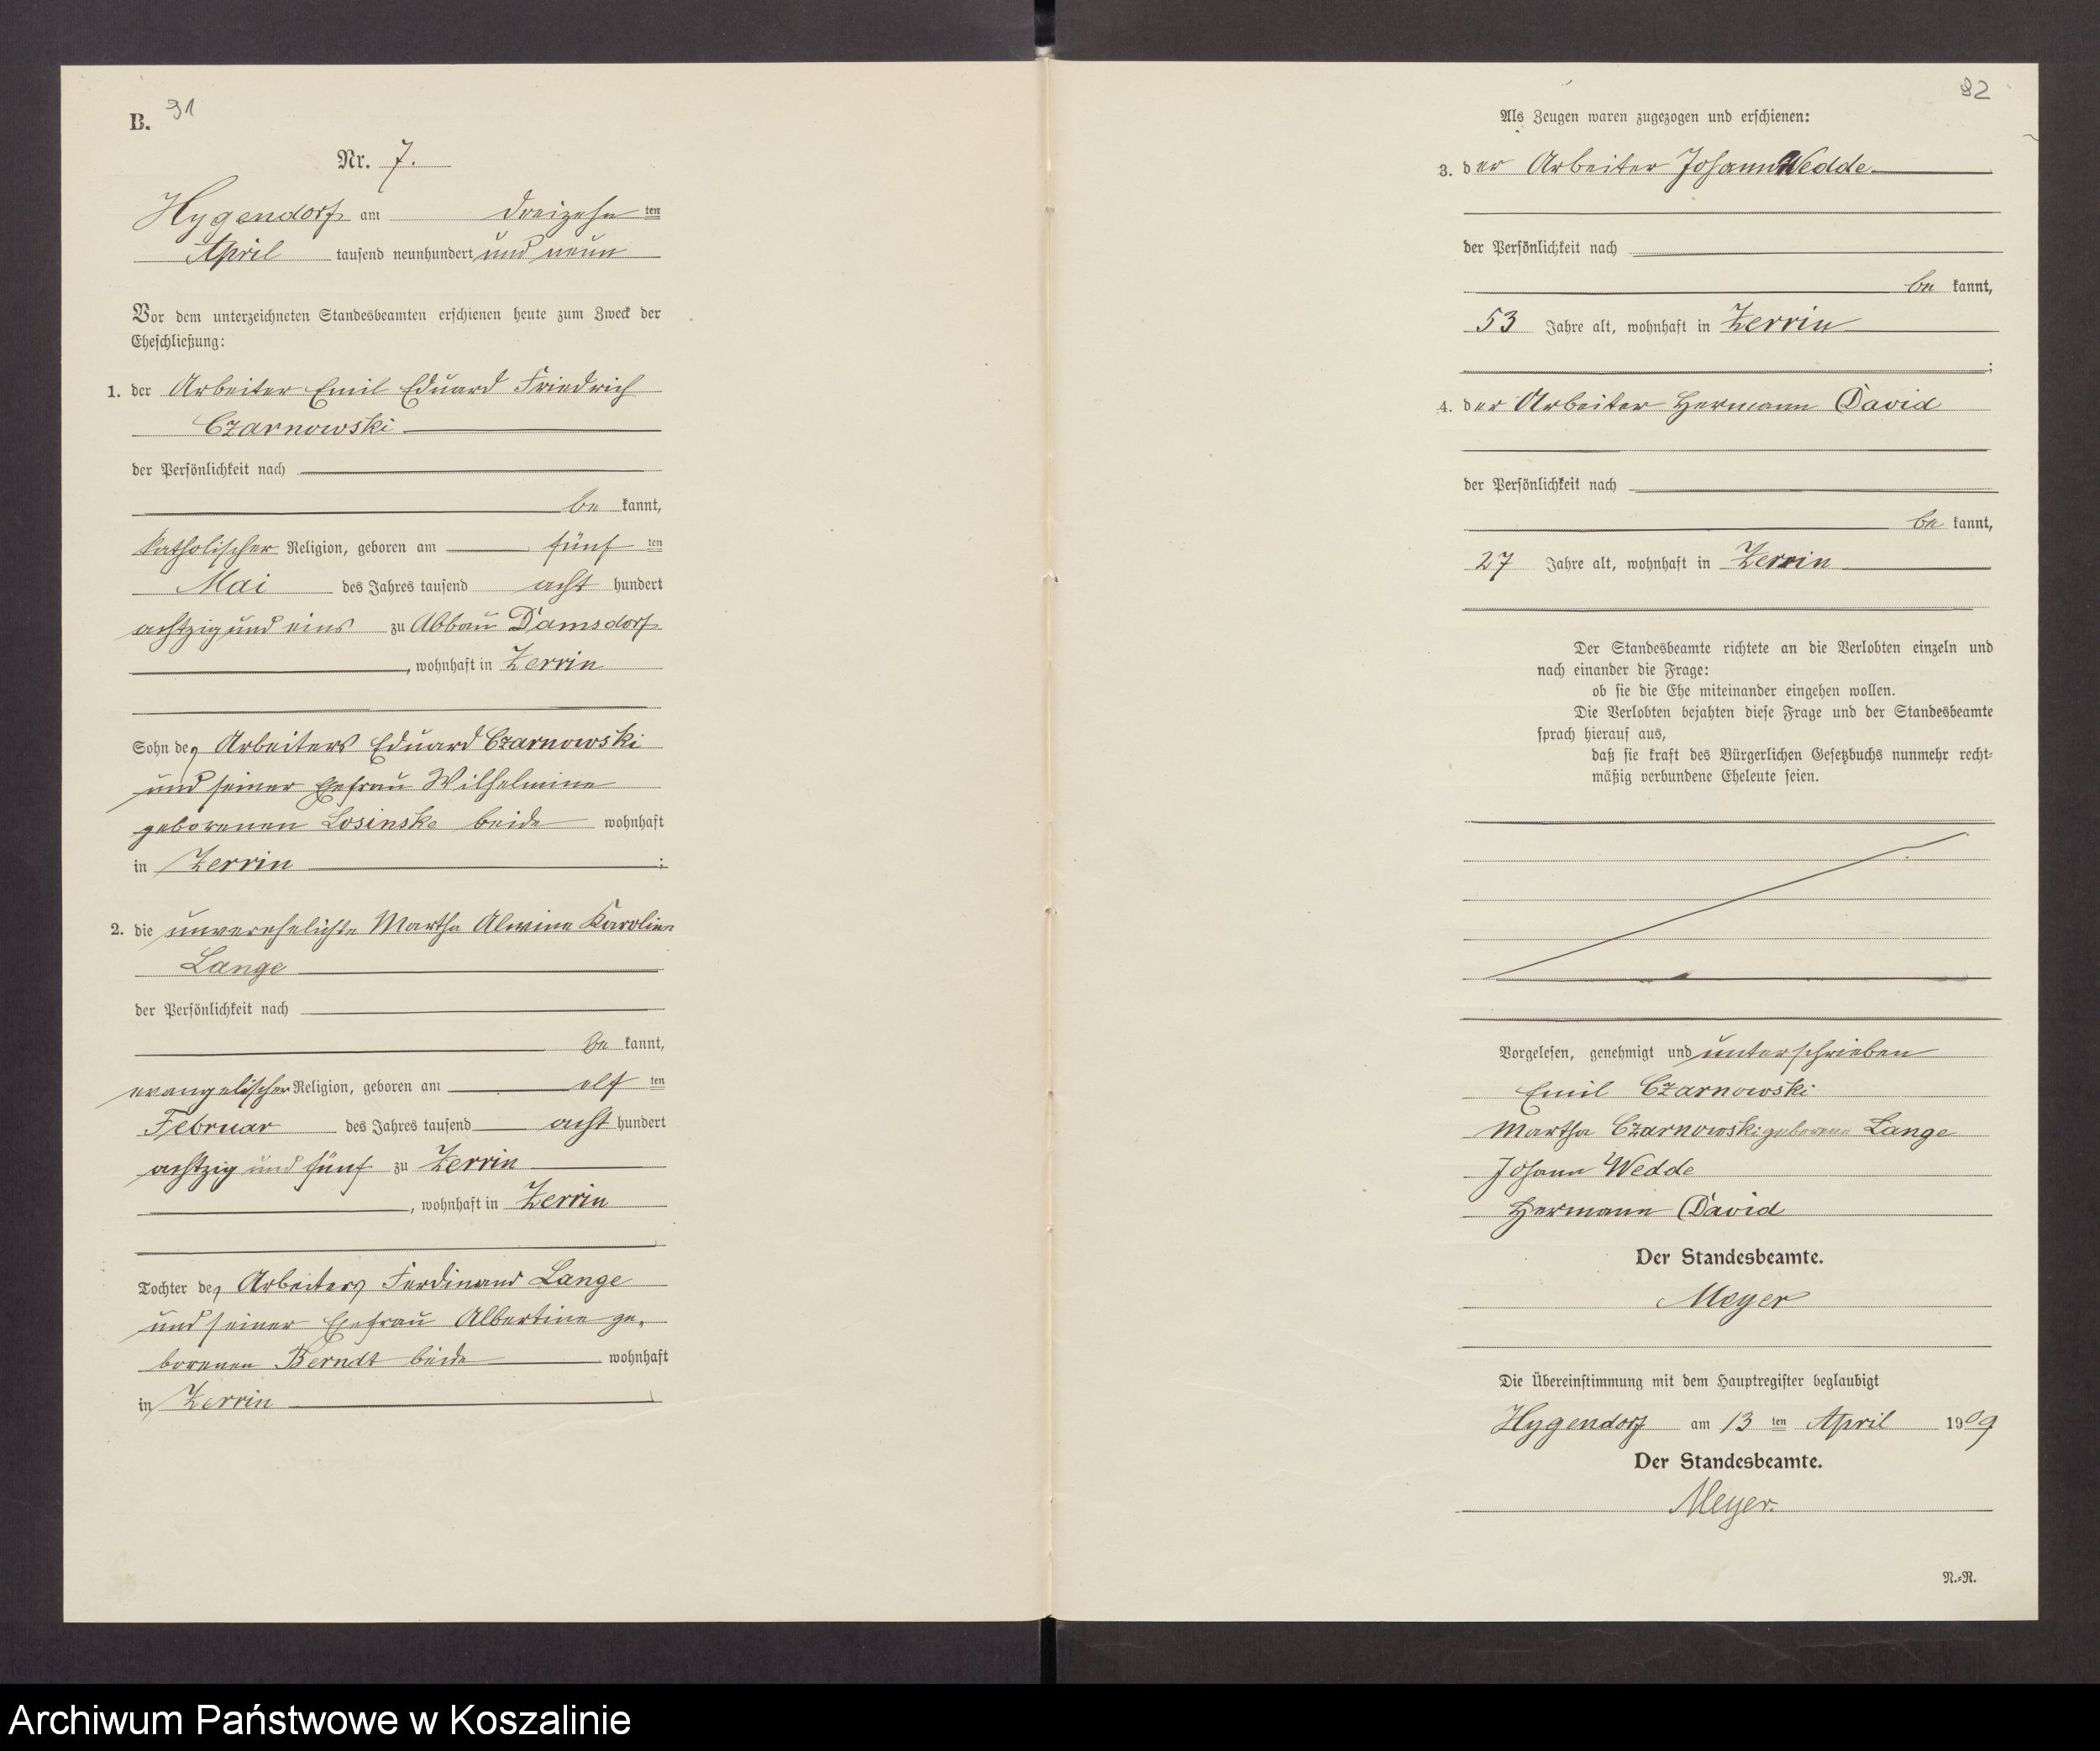 B. 31
Nr. 7.
Hygendorf am dreizehn ten
April tausend neunhundert und neun
Vor dem unterzeichneten Standesbeamten erschienen heute zum Zweck der
Eheschließung:
1. der Arbeiter Emil Eduard Friedrich
Czarnowski
der Persönlichkeit nach
be kannt,
katholischer Religion, geboren am fünf ten
Mai des Jahres tausend acht hundert
achtzig und eins zu Abbau Damsdorf
, wohnhaft in Zerrin
Sohn des Arbeiters Eduard Czarnowski
und seiner Ehefrau Wilhelmine
geborenen Losinske beide wohnhaft
in Zerrin ;
2. die unverehelichte Martha Alwine Karoline
Lange
der Persönlichkeit nach
be kannt,
evangelischer Religion, geboren am elf ten
Februar des Jahres tausend acht hundert
achtzig und fünf zu Zerrin
, wohnhaft in Zerrin
Tochter des Arbeiters Ferdinand Lange
und seiner Ehefrau Albertine ge-
borenen Berndt beide wohnhaft
in Zerrin
82
Als Zeugen waren zugezogen und erschienen:
3. der Arbeiter Johann Wedde
der Persönlichkeit nach
be kannt,
53 Jahre alt, wohnhaft in Zerrin
;
4. der Arbeiter Hermann David
der Persönlichkeit nach
be kannt,
27 Jahre alt, wohnhaft in Zerrin
Der Standesbeamte richtete an die Verlobten einzeln und
nach einander die Frage:
ob sie die Ehe miteinander eingehen wollen.
Die Verlobten bejahten diese Frage und der Standesbeamte
sprach hierauf aus,
daß sie kraft des Bürgerlichen Gesetzbuchs nunmehr recht-
mäßig verbundene Eheleute seien.
Vorgelesen, genehmigt und unterschrieben
Emil Czarnowski
Martha Czarnowski geborene Lange
Johann Wedde
Hermann David
Der Standesbeamte.
Meyer
Die Übereinstimmung mit dem Hauptregister beglaubigt
Hygendorf am 13 ten April 1909
Der Standesbeamte.
Meyer.
N.-R.
Archiwum Państwowe w Koszalinie